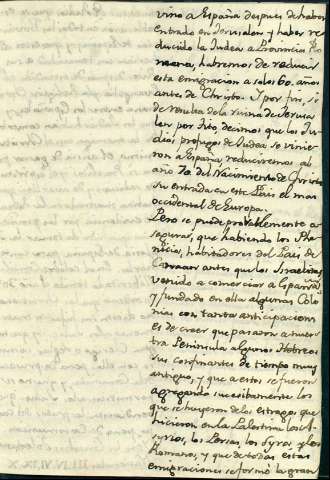 vino a España despues de haber
entrado en Jerusalen y haber re
ducido la Judea a Provincia Ro
mana, habremos de reducir
esta emigracion a solos 60. años
antes de Christo. Y por fin, si
de resultas de la ruina de Jerusa
len por Tito, decimos que los Ju
dios profugos de Judea se vinie
ron a España, reduciremos al
año 70 del Nacimiento de Christo
su entrada en este Pais el mas
occidental de Europa.
Pero se puede probablemente a
segurar, que habiendo los Phe
nicios, habitadores del Pais de
Canaan antes que los Israelitas
venido a comerciar a España
y fundado en ella algunas Colo
nias con tanta anticipacion
es de creer que pasaron a nues
tra Peninsula algunos Hebreos
sus confinantes de tiempo muy
antiguo, y que a estos se fueron
agregando sucesibamente los
que se huyeron de los estragos que
hicieron en la Palestina los As
syrios, los Persas, los Syros, y los
Romanos, y que de todas estas
emigraciones se formó la gran